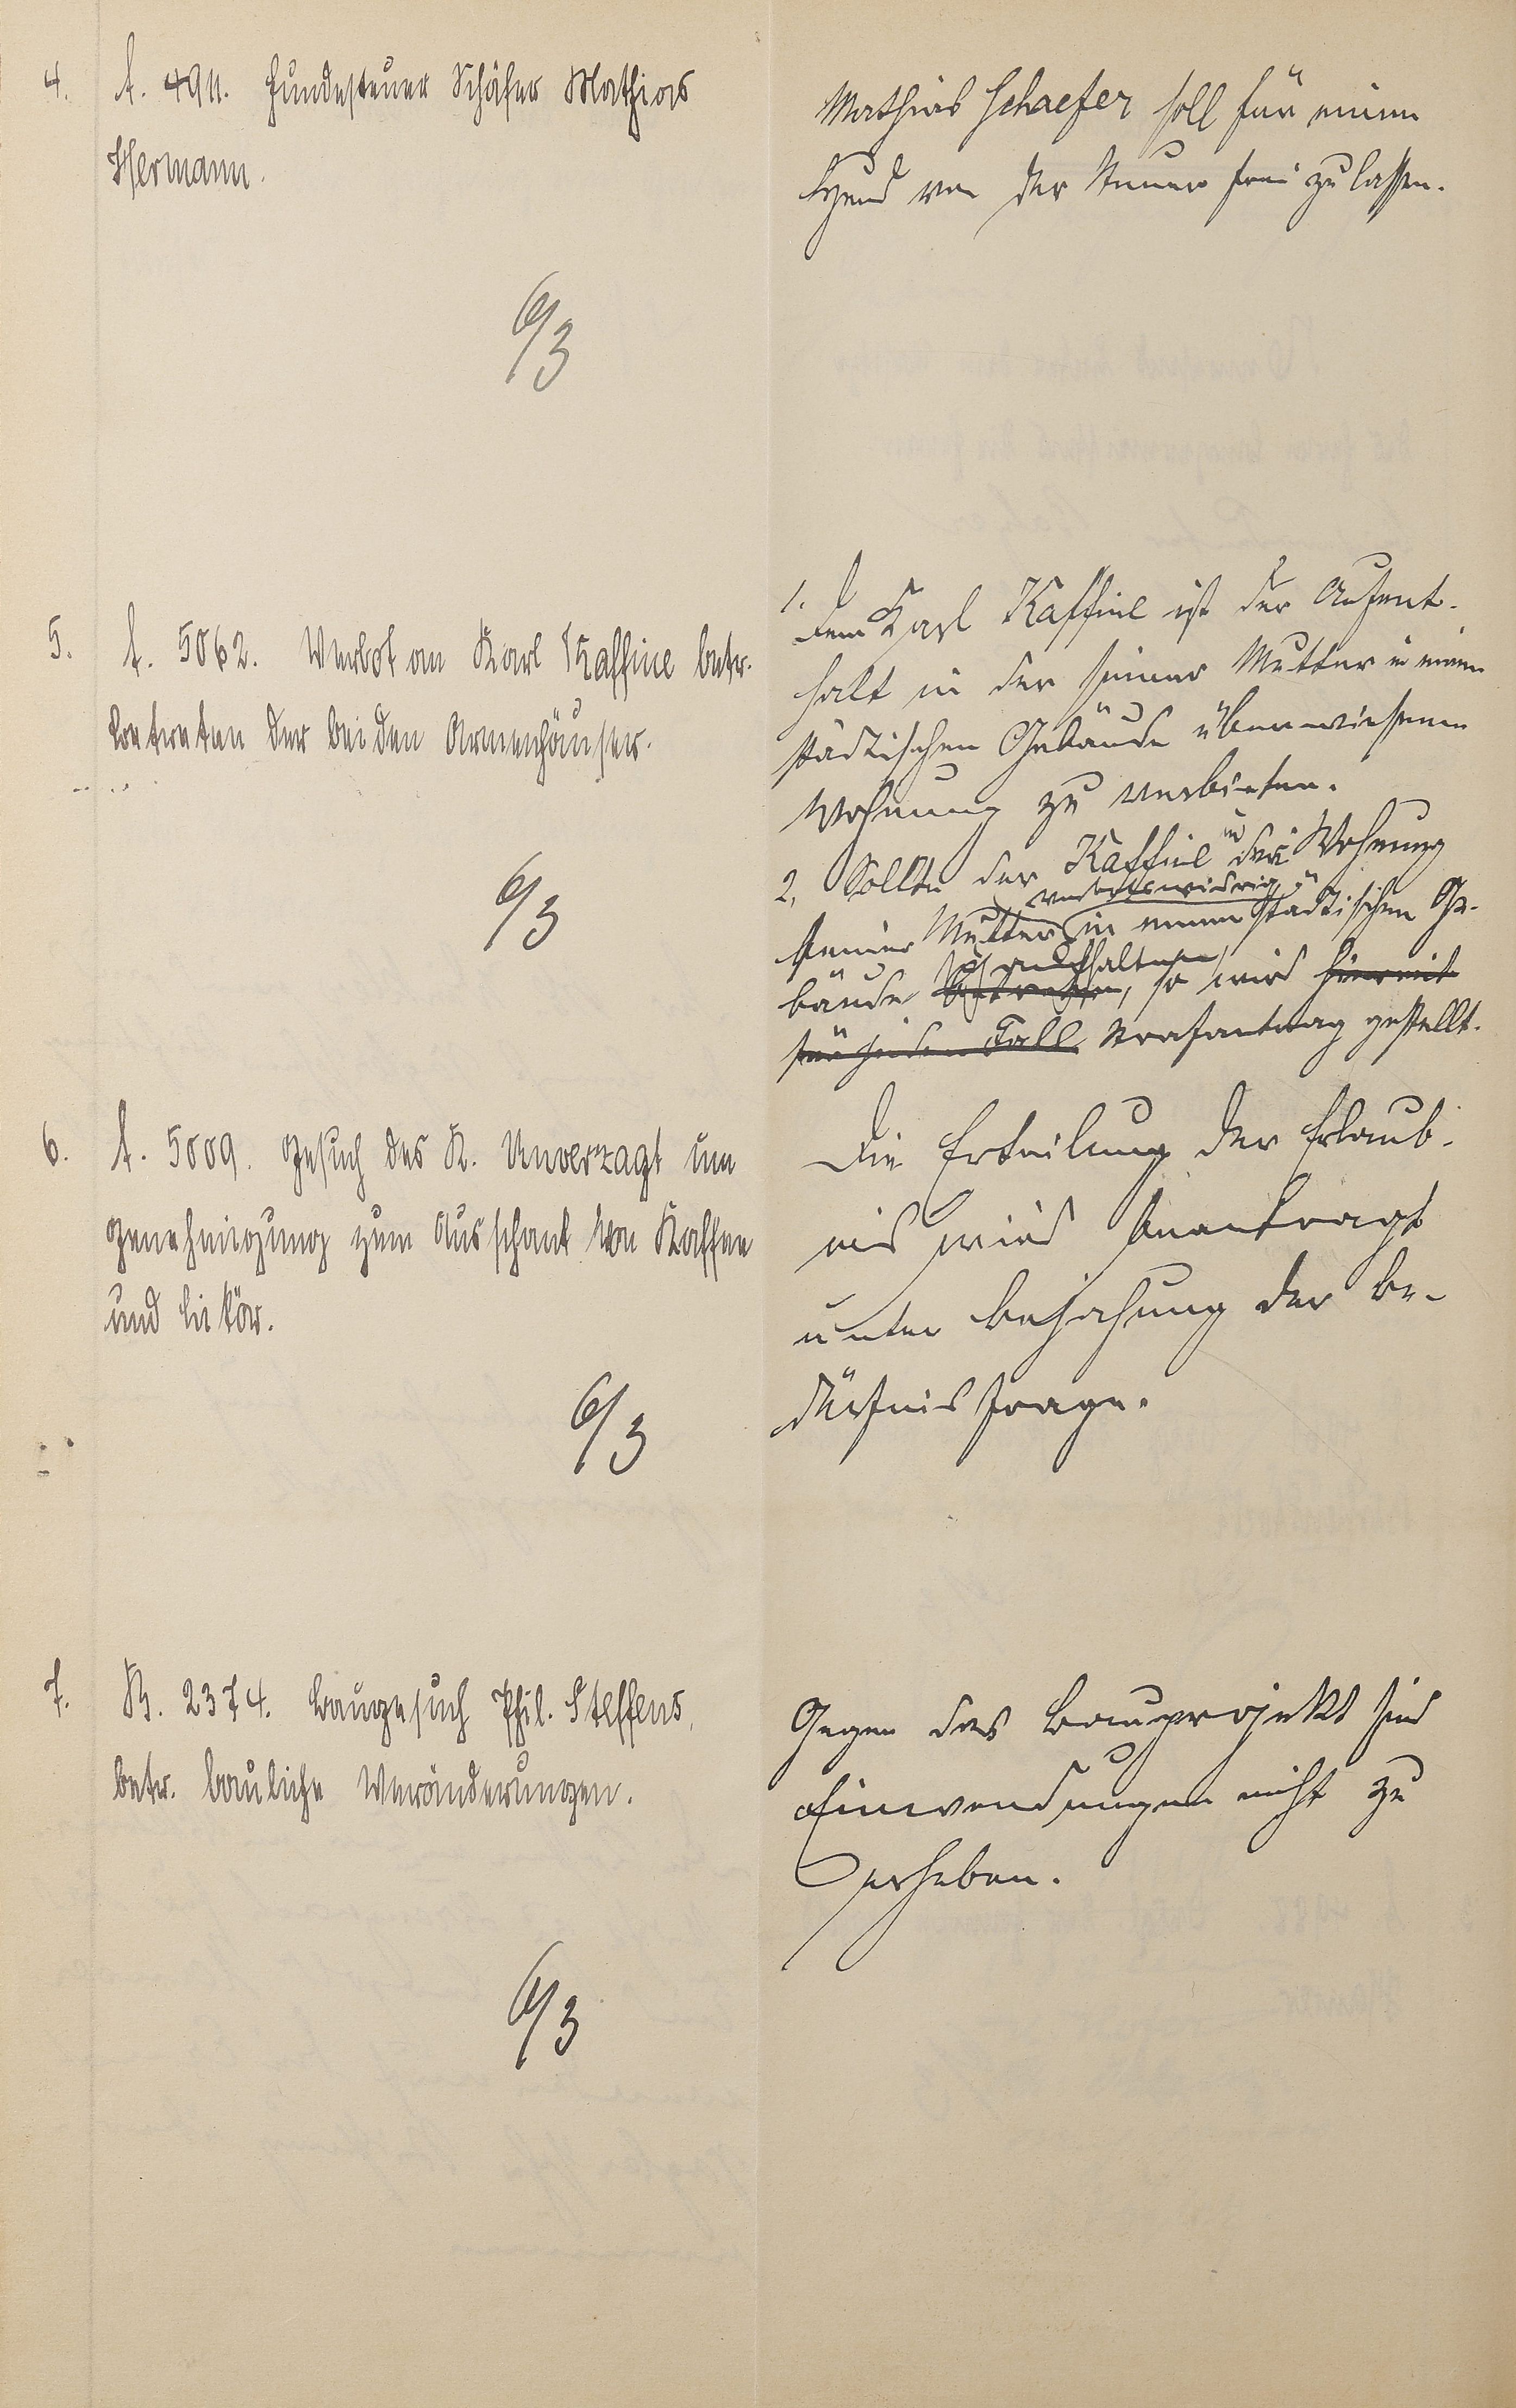 4.
t. 4911. Hundesteuer Schäfer Mathias
Hermann.
6/3
Mathias Schaefer soll für einen
Hund von der Steuer frei zu lassen.
5.
t. 5062. Verbot an Karl Kaffine betr.
Betreten der beiden Armenhäuser.
6/3
1. Dem Karl Kaffine ist der Aufent-
halt in der seiner Mutter in einem
städtischen Gebäude überwiesenen
Wohnung zu verbieten.
2. Sollte der Kaffine in der Wohnung
verbotswidrig
seiner Mutter in einem städtischen Ge-
sich aufhalten
bäude betreten, so wird hiermit
für jeden Fall Strafantrag gestellt.
6.
t. 5009. Gesuch des K. Unverzagt um
Genehmigung zum Ausschank von Kaffee
und Likör.
6/3
Die Erteilung der Erlaub-
nis wird beantragt
unter Bejahung der Be-
dürfnisfrage.
7.
B. 2374. Baugesuch Phil. Steffens,
betr. bauliche Veränderungen.
6/3
Gegen das Bauprojekt sind
Einwendungen nicht zu
erheben.